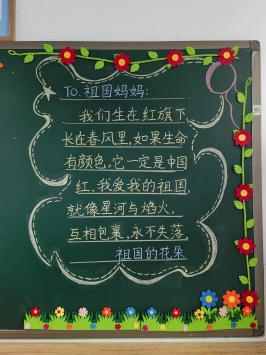 TO.祖国妈妈:
我们生在红旗下
长在春风里,如果生命
有颜色,它一定是中国
红,我爱我的祖国,
就像星河与焰火,
互相包裹,永不失落
祖国的花朵